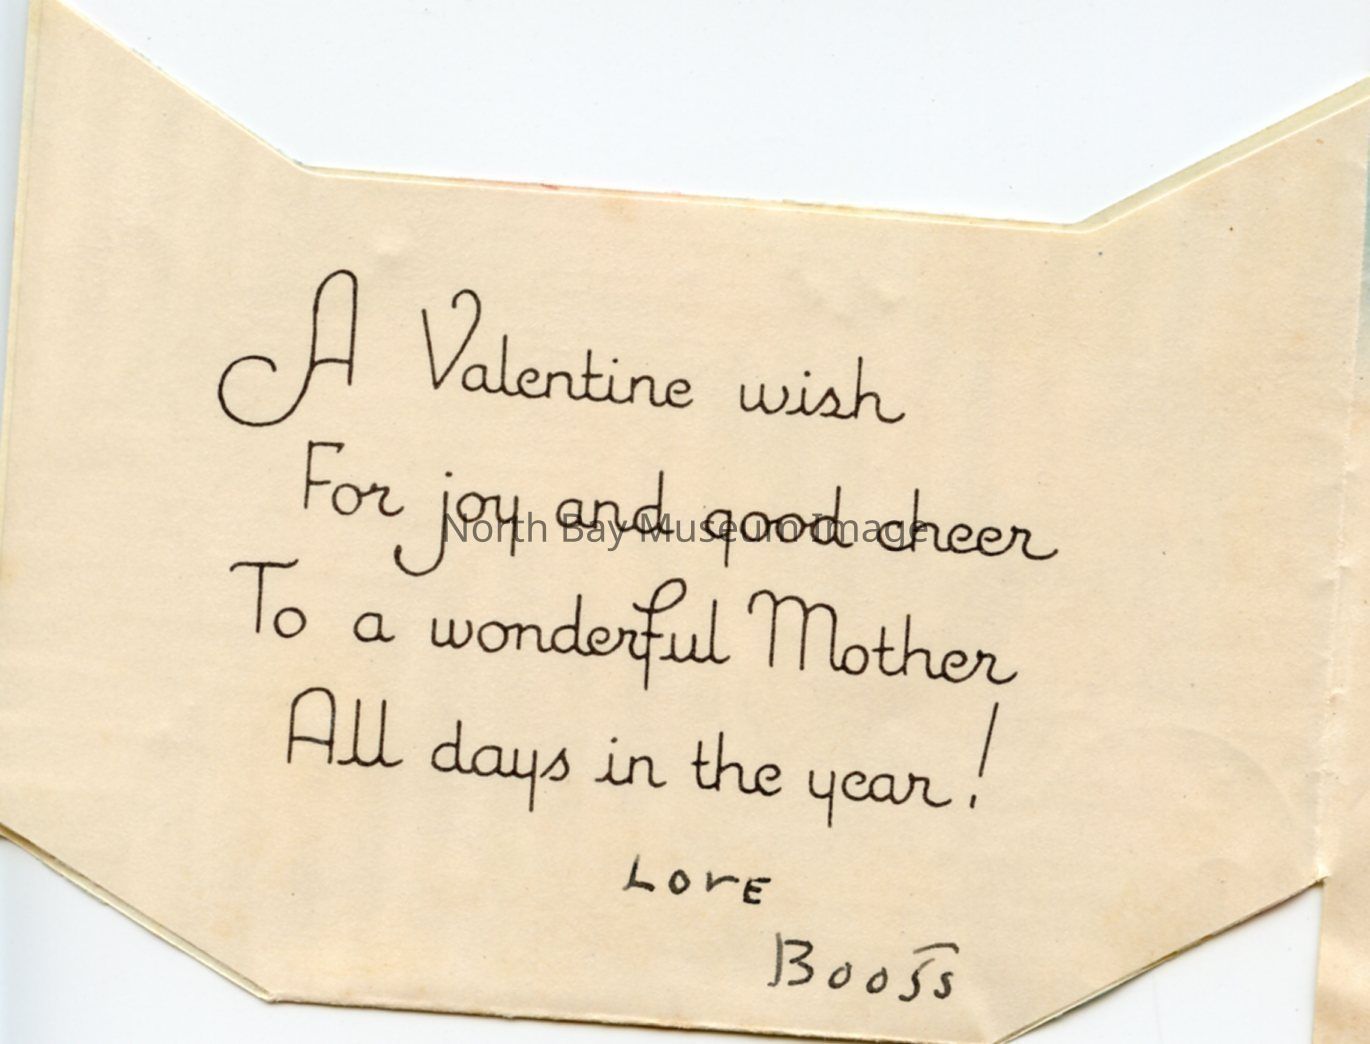 A Valentine wish
For joy and good cheer
North Bay Museum Image
To a wonderful Mother
All days in the year!
Love
Booss